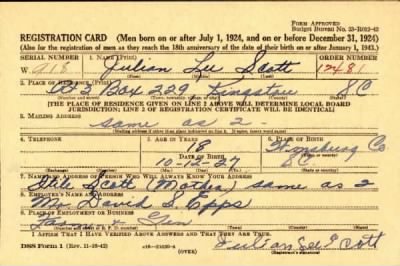 FORM APPROVED
Budget Bureau No. 33-R012-42
REGISTRATION CARD (Men born on or after July 1, 1924, and on or before December 31, 1924)
(Also for the registration of men as they reach the 18th anniversary of the date of their birth on or after January 1, 1943.)
SERIAL NUMBER 1. NAME (Print) ORDER NUMBER
W 918 Julian Lee Scott 12481
2. PLACE OF RESIDENCE (Print)
Box 229 Kingstree SC
[THE PLACE OF RESIDENCE GIVEN ON LINE 2 ABOVE WILL DETERMINE LOCAL BOARD
JURISDICTION; LINE 2 OF REGISTRATION CERTIFICATE WILL BE IDENTICAL]
3. MAILING ADDRESS
same as 2
4. TELEPHONE 5. AGE IN YEARS 6. PLACE OF BIRTH
18
DATE OF BIRTH
10-12-27
7. NAME AND ADDRESS OF PERSON WHO WILL ALWAYS KNOW YOUR ADDRESS
Scott (Mother) same as 2
8. EMPLOYER'S NAME AND ADDRESS
David S. Epps
9. PLACE OF EMPLOYMENT OR BUSINESS
I AFFIRM THAT I HAVE VERIFIED ABOVE ANSWERS AND THAT THEY ARE TRUE.
DSS Form 1 (Rev. 11-16-42) (OVER) Julian Lee Scott
(Registrant's signature)